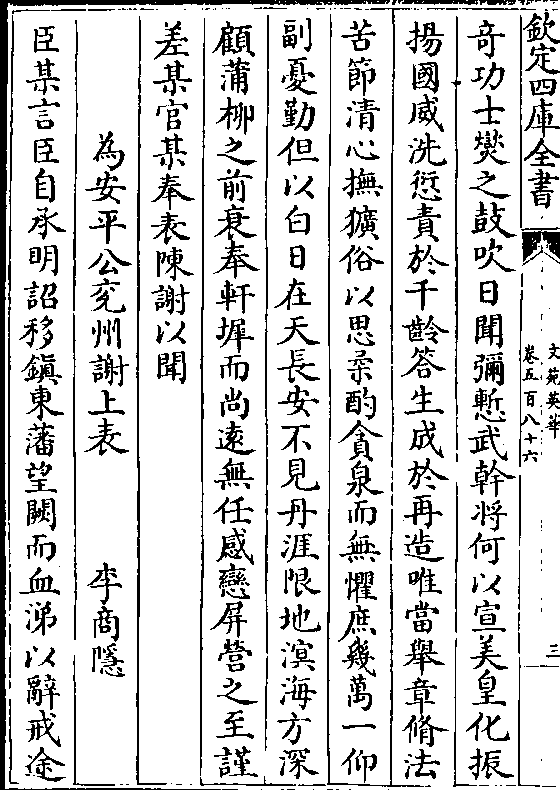 欽定四庫全書
文苑英華
卷五百八十六
三
竒功士爕之鼓吹日聞彌慙武幹將何以宣美皇化振
揚國威洗愆責於千齡答生成於再造唯當舉章脩法
苦節清心撫獷俗以思柔酌貪泉而無懼庶幾萬一仰
副憂勤但以白日在天長安不見丹涯限地溟海方深
顧蒲柳之前衰奉軒墀而尚遠無任感戀屏營之至謹
差某官某奉表陳謝以聞
為安平公兖州謝上表 李商隱
臣某言臣自承明詔移鎮東藩望闕而血涕以辭戒途